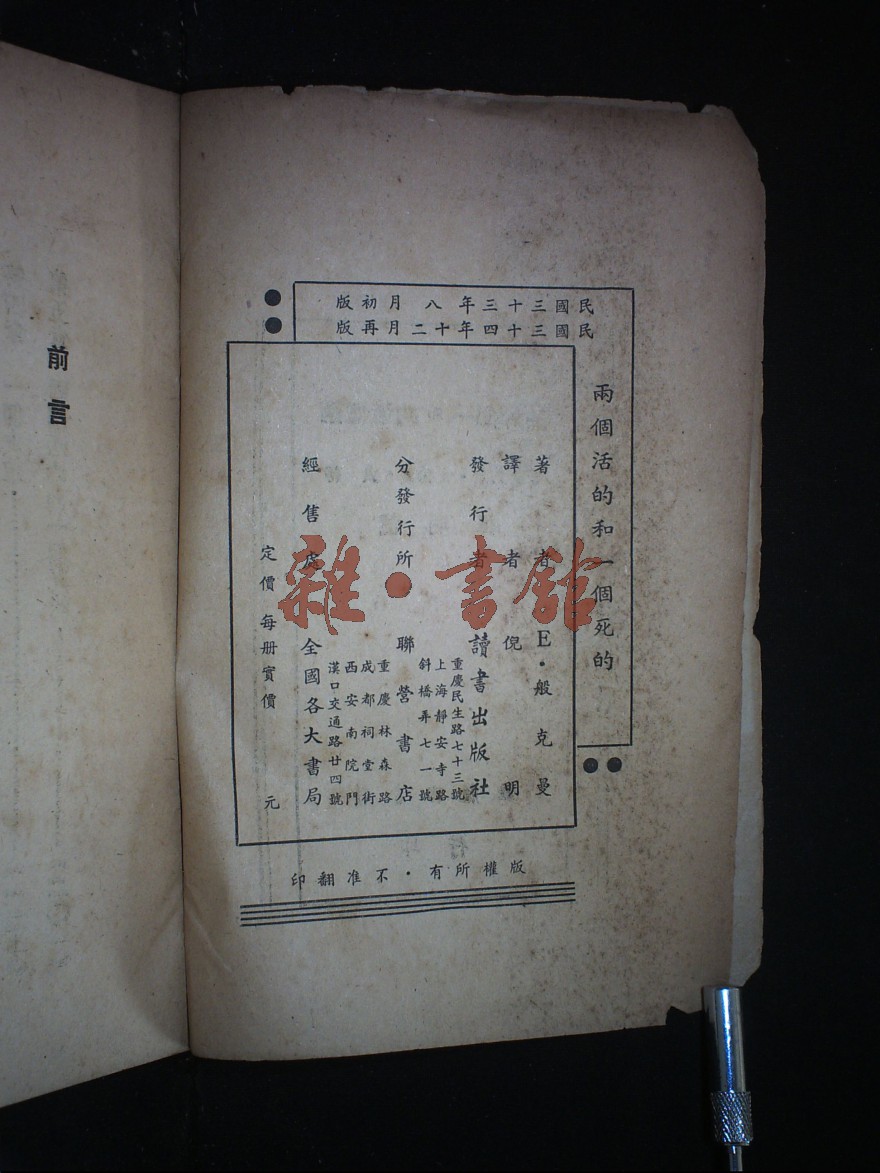 民國三十三年八月初版
民國三十四年十二月再版
兩個活的和一個死的
著者 E·般克曼
譯者 倪明
發行者 讀書出版社
重慶民生路七十三號
上海靜安寺路
斜橋弄七一號
分發行所 聯營書店
重慶林森路
成都祠堂街
西安南院門
漢口交通路廿四號
經售處 全國各大書局
定價每册實價 元
版權所有·不准翻印
前言
雜·書館